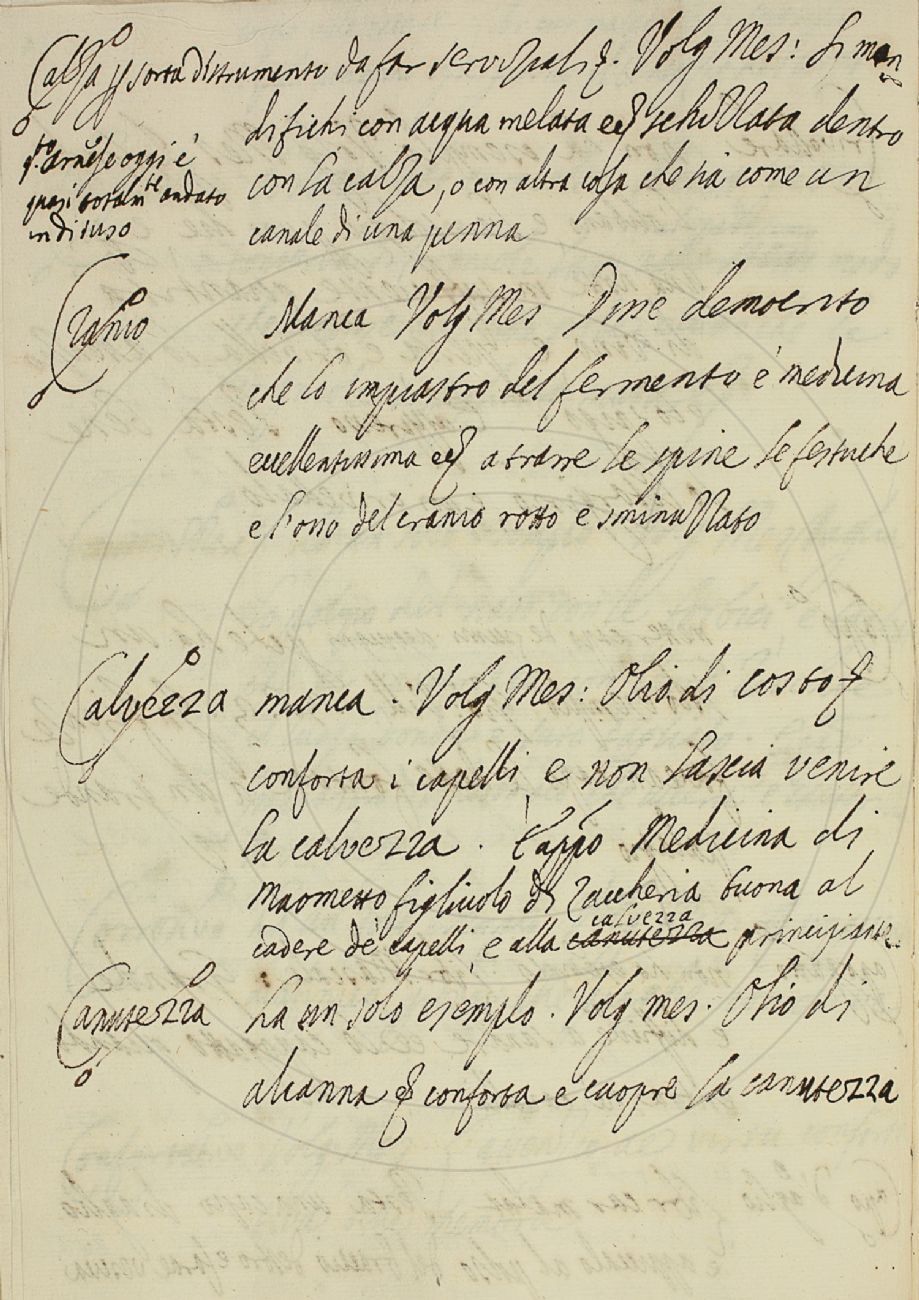 Calza p sorta di strumento da far serviziali &. Volg Mes: Si man
di fichi con acqua melata ecc schizzata dentro
con la calza, o con altra cosa che sia come un
canale di una penna
qto arnese oggi è
quasi totalmte andato
in disuso
Cranio Manca Volg Mes Disse democrito
che lo impiastro del fermento è medicina
eccellentissima ecc a trarre le spine le festuche
e l'osso del cranio rotto e sminuzzato
Calvezza manca . Volg Mes: Olio di costo &
conforta i capelli e non lascia venire
la calvezza . E appo Medicina di
Maometto figliuolo di Zaccheria buona al
cadere de capelli, e alla canutezza calvezza principiante
Canutezza ha un solo esemplo . Volg mes. Olio di
alcanna & conforta e cuopre la canutezza